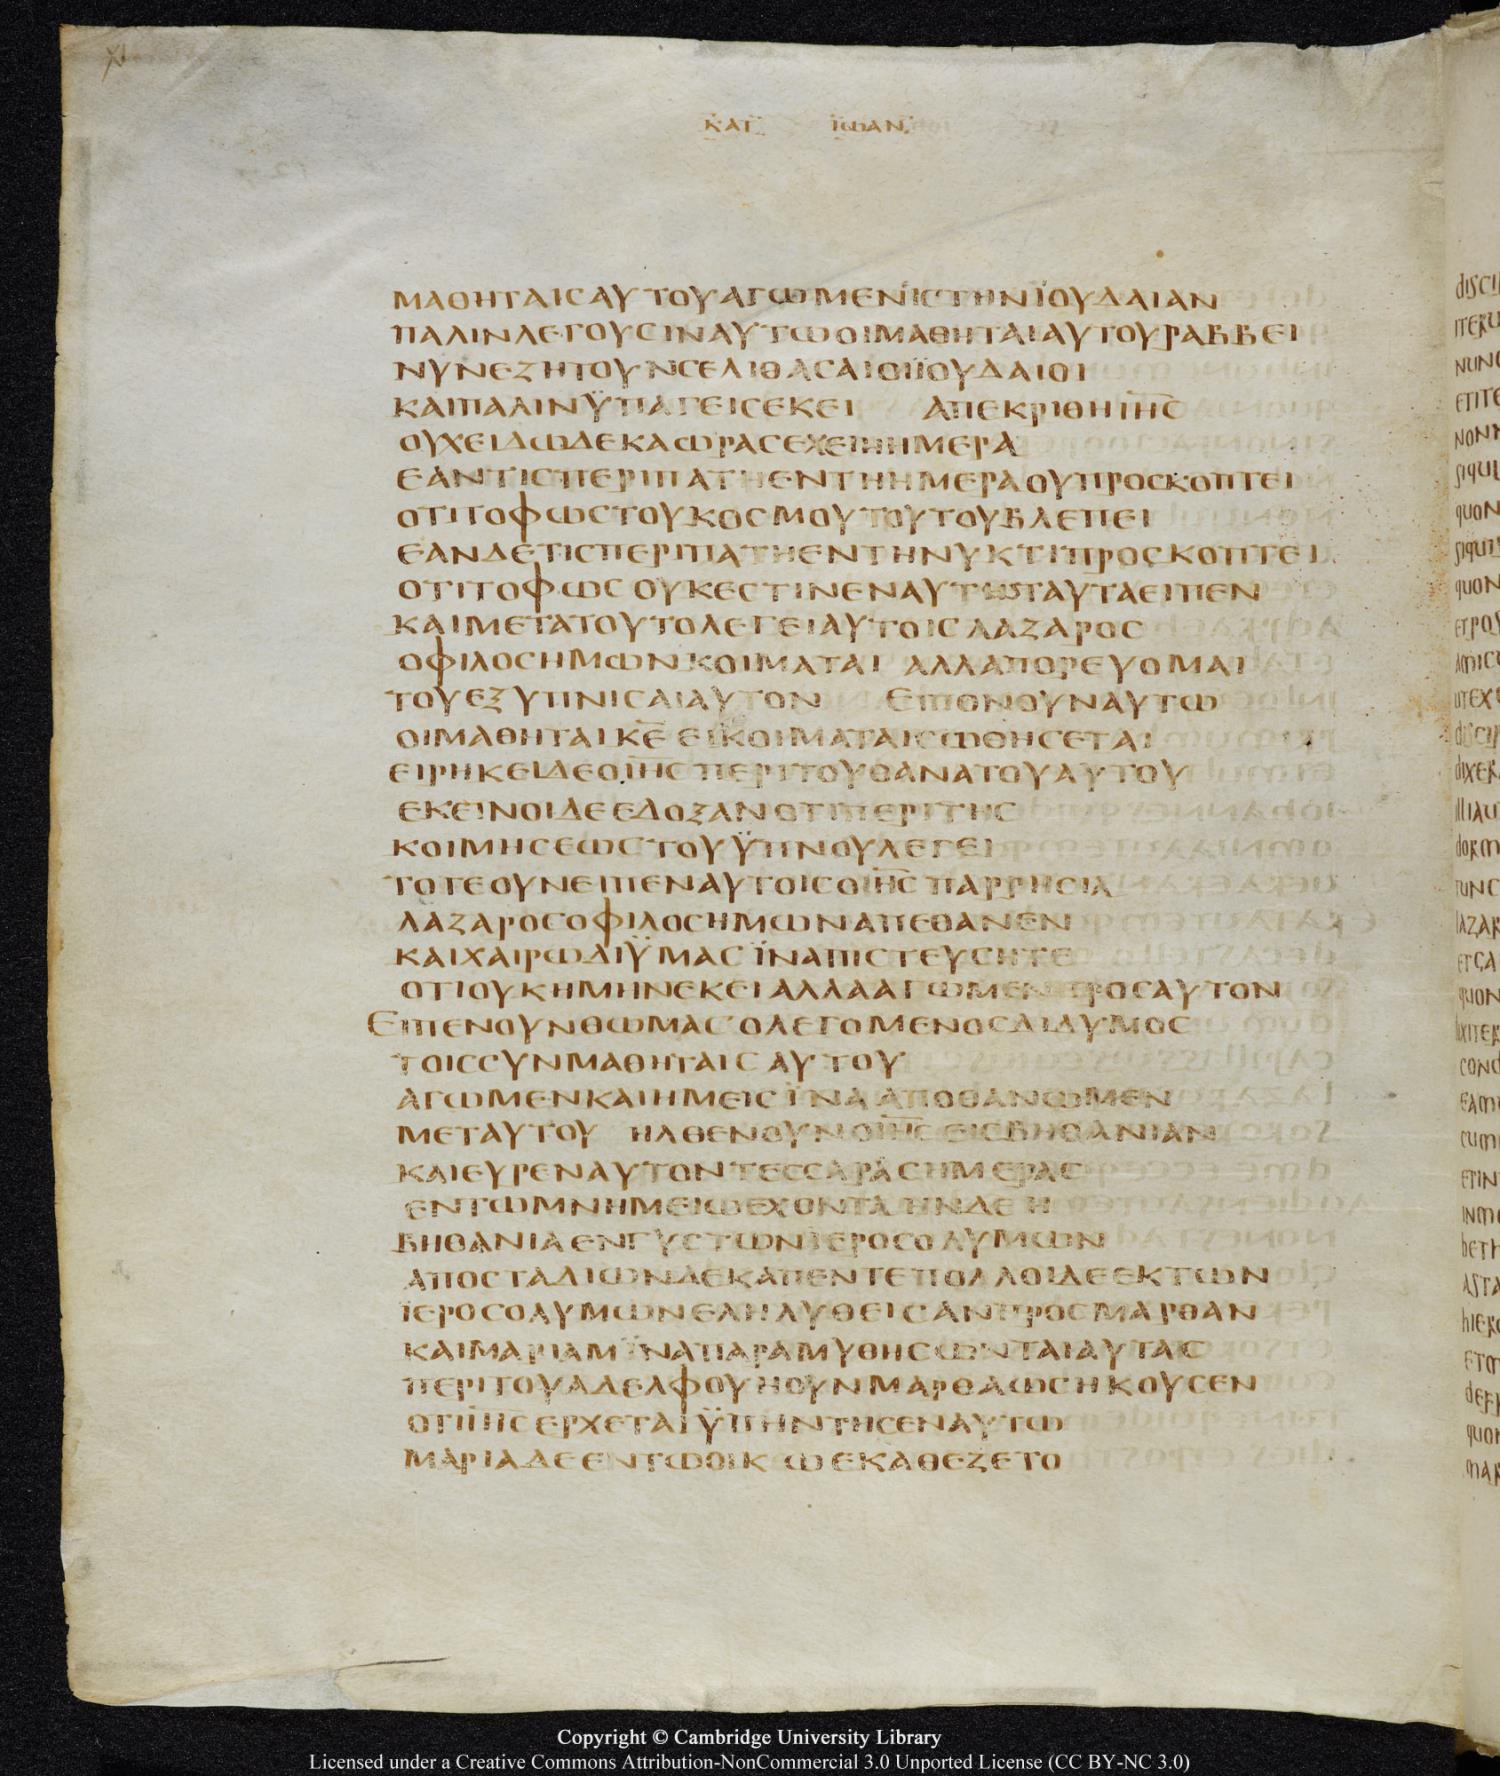 ΚΑΤ ΙΩΑΝ
ΜΑΘΗΤΑΙCΑΥΤΟΥΑΓΩΜΕΝΙCΤΗΝΪΟΥΔΑΙΑΝ
ΠΑΛΙΝΛΕΓΟΥCΙΝΑΥΤΩΟΙΜΑΘΗΤΑΙΑΥΤΟΥΡΑΒΒΕΙ
ΝΥΝΕΖΗΤΟΥΝCΕΛΙΘΑCΑΙΟΙΪΟΥΔΑΙΟΙ
ΚΑΙΠΑΛΙΝΫΠΑΓΕΙCΕΚΕΙ ΑΠΕΚΡΙΘΗΙ̅Η̅C̅
ΟΥΧΕΙΔΩΔΕΚΑΩΡΑCΕΧΕΙΗΗΜΕΡΑ
ΕΑΝΤΙCΠΕΡΙΠΑΤΗΕΝΤΗΗΜΕΡΑΟΥΠΡΟCΚΟΠΤΕΙ
ΟΤΙΤΟΦΩCΤΟΥΚΟCΜΟΥΤΟΥΤΟΥΒΛΕΠΕΙ
ΕΑΝΔΕΤΙCΠΕΡΙΠΑΤΗΕΝΤΗΝΥΚΤΙΠΡΟCΚΟΠΤΕΙ
ΟΤΙΤΟΦΩCΟΥΚΕCΤΙΝΕΝΑΥΤΗΤΑΥΤΑΕΙΠΕΝ
ΚΑΙΜΕΤΑΤΟΥΤΟΛΕΓΕΙΑΥΤΟΙCΛΑΖΑΡΟC
ΟΦΙΛΟCΗΜΩΝΚΟΙΜΑΤΑΙ ΑΛΛΑΠΟΡΕΥΟΜΑΙ
ΤΟΥΕΞΥΠΝΙCΑΙΑΥΤΟΝ ΕΙΠΟΝΟΥΝΑΥΤΩ
ΟΙΜΑΘΗΤΑΙΚ̅Ε̅ ΕΙΚΟΙΜΑΤΑΙCΩΘΗCΕΤΑΙ
ΕΙΡΗΚΕΙΔΕΟΙ̅Η̅C̅ΠΕΡΙΤΟΥΘΑΝΑΤΟΥΑΥΤΟΥ
ΕΚΕΙΝΟΙΔΕΕΔΟΞΑΝΟΤΙΠΕΡΙΤΗC
ΚΟΙΜΗCΕΩCΤΟΥΫΠΝΟΥΛΕΓΕΙ
ΤΟΤΕΟΥΝΕΙΠΕΝΑΥΤΟΙCΟΙ̅Η̅C̅ΠΑΡΡΗCΙΑ
ΛΑΖΑΡΟCΟΦΙΛΟCΗΜΩΝΑΠΕΘΑΝΕΝ
ΚΑΙΧΑΙΡΩΔΙΫΜΑCΪΝΑΠΙCΤΕΥCΗΤΕ
ΟΤΙΟΥΚΗΜΗΝΕΚΕΙΑΛΛΑΑΓΩΜΕΝΠΡΟCΑΥΤΟΝ
ΕΙΠΕΝΟΥΝΘΩΜΑCΟΛΕΓΟΜΕΝΟCΔΙΔΥΜΟC
ΤΟΙCCΥΝΜΑΘΗΤΑΙCΑΥΤΟΥ
ΑΓΩΜΕΝΚΑΙΗΜΕΙCΪΝΑΑΠΟΘΑΝΩΜΕΝ
ΜΕΤΑΥΤΟΥ ΗΛΘΕΝΟΥΝΟΙ̅Η̅C̅ΕΙCΒΗΘΑΝΙΑΝ
ΚΑΙΕΥΡΕΝΑΥΤΟΝΤΕCCΑΡΑCΗΜΕΡΑC
ΕΝΤΩΜΝΗΜΕΙΩΕΧΟΝΤΑ ΗΝΔΕΗ
ΒΗΘΑΝΙΑΕΝΓΥCΤΩΝΪΕΡΟCΟΛΥΜΩΝ
ΑΠΟCΤΑΔΙΩΝΔΕΚΑΠΕΝΤΕΠΟΛΛΟΙΔΕΕΚΤΩΝ
ΪΕΡΟCΟΛΥΜΩΝΕΛΗΛΥΘΕΙCΑΝΠΡΟCΜΑΡΘΑΝ
ΚΑΙΜΑΡΙΑΜΪΝΑΠΑΡΑΜΥΘΗCΩΝΤΑΙΑΥΤΑC
ΠΕΡΙΤΟΥΑΔΕΛΦΟΥΗΟΥΝΜΑΡΘΑΩCΗΚΟΥCΕΝ
ΟΤΙΙ̅Η̅C̅ΕΡΧΕΤΑΙΫΠΗΝΤΗCΕΝΑΥΤΩ
ΜΑΡΙΑΔΕΕΝΤΩΟΙΚΩΕΚΑΘΕΖΕΤΟ
Copyright © Cambridge University Library
Licensed under a Creative Commons Attribution-NonCommercial 3.0 Unported License (CC BY-NC 3.0)